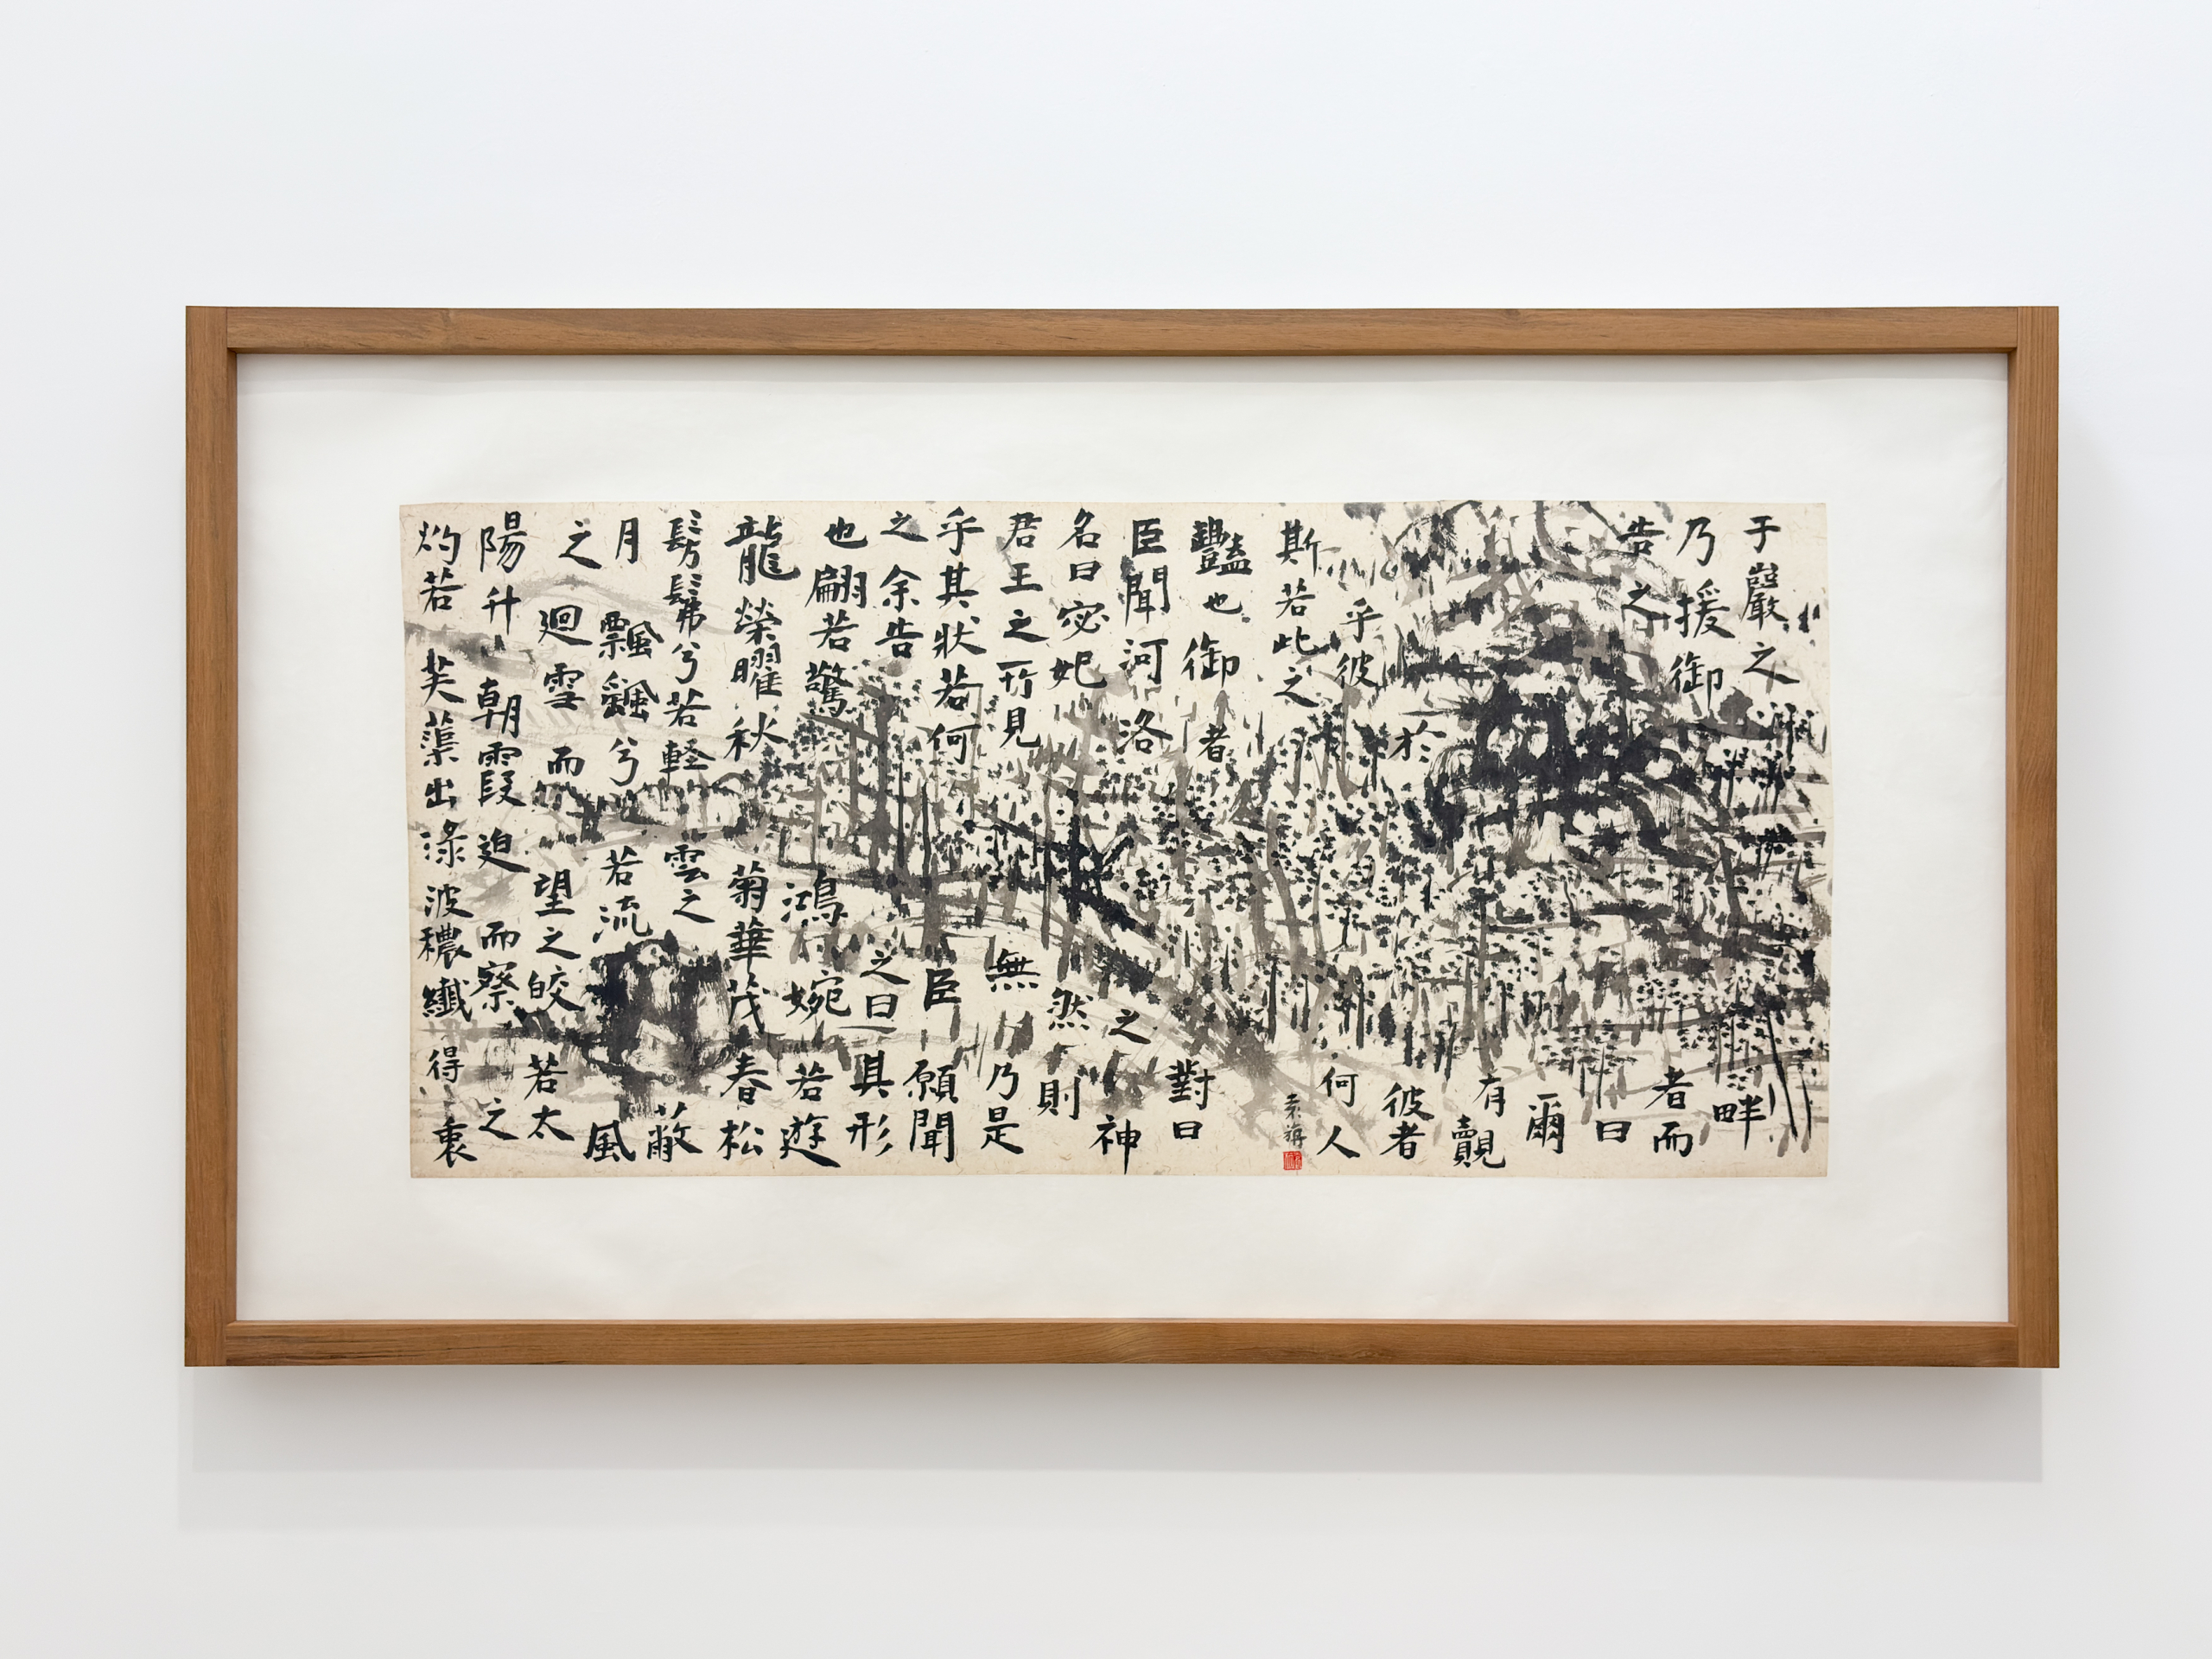 于巖之畔
乃援御者而
告之曰
爾
有覿
於彼者
乎彼何人
斯若此之
袁旃
豔也御者對曰
臣聞河洛之神
名曰宓妃然則
君王之所見無乃是
乎其狀若何臣願聞
之余告之曰其形
也翩若驚鴻婉若遊
龍榮曜秋菊華茂春松
髣髴兮若軽雲之蔽
月飄颻兮若流風
之迴雪而望之皎若太
陽升朝霞迫而察之
灼若芙蕖出淥波穠纖得衷